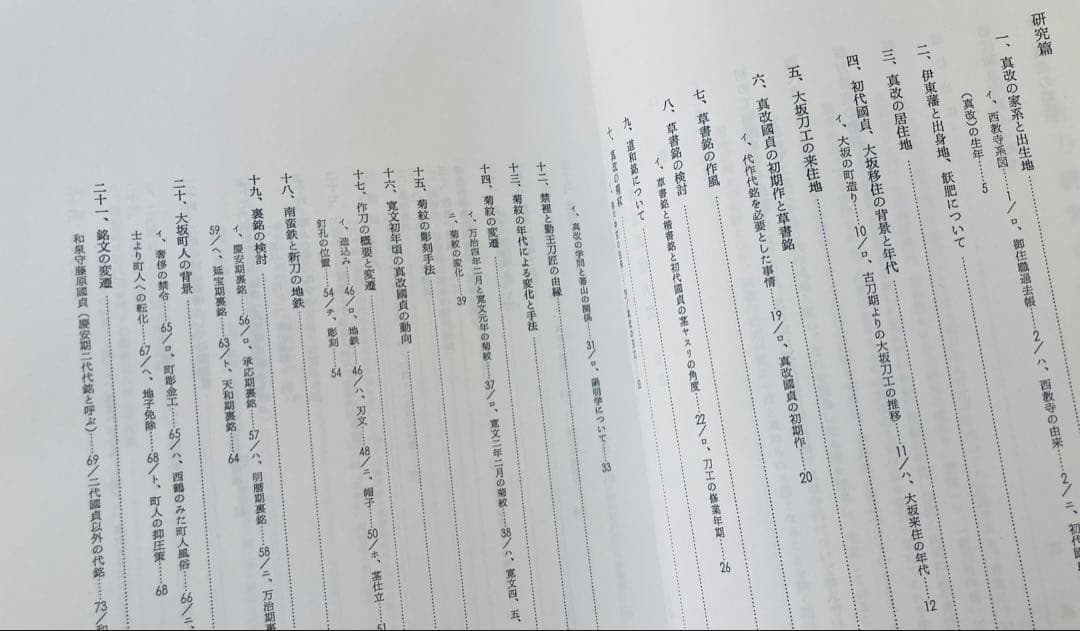 研究篇
一、真改の家系と出生地
イ、西教寺系図 1／ロ、御住職過去帳 2／ハ、西教寺の由来 2／ニ、初代國
（真改）の生年 5
二、伊東藩と出身地、飫肥について
三、真改の居住地
四、初代國貞、大坂移住の背景と年代
イ、大坂の町造り 10／ロ、古刀期よりの大坂刀工の推移 11／ハ、大坂来住の年代 12
五、大坂刀工の来住地
六、真改國貞の初期作と草書銘
イ、代作代銘を必要とした事情 19／ロ、真改國貞の初期作 20
七、草書銘の作風
八、草書銘の検討
イ、草書銘と楷書銘と初代國貞の茎ヤスリの角度 22／ロ、刀工の修業年期 26
九、道和銘について
十、真改の
イ、真改の学問と蕃山の関係 31／ロ、陽明学について 33
十二、禁裡と勤王刀匠の由縁
十三、菊紋の年代による変化と手法
十四、菊紋の変遷
イ、万治四年二月と寛文元年の菊紋 37／ロ、寛文二年二月の菊紋 38／ハ、寛文四、五、
ニ、菊紋の変化 39
十五、菊紋の彫刻手法
十六、寛文初年頃の真改國貞の動向
十七、作刀の概要と変遷
イ、造込み 46／ロ、地鉄 46／ハ、刃文 48／ニ、帽子 50／ホ、茎仕立 51
釘孔の位置 54／チ、彫刻 54
十八、南蛮鉄と新刀の地鉄
十九、裏銘の検討
イ、慶安期裏銘 56／ロ、承応期裏銘 57／ハ、明暦期裏銘 58／ニ、万治期裏
59／ヘ、延宝期裏銘 63／ト、天和期裏銘 64
二十、大坂町人の背景
イ、奢侈の禁令 65／ロ、町彫金工 65／ハ、西鶴のみた町人風俗 66／ニ、
士より町人への転化 67／ヘ、地子免除 68／ト、町人の抑圧策 68
二十一、銘文の変遷
和泉守藤原國貞（慶安期二代代銘と呼ぶ） 69／二代國貞以外の代銘 73／和